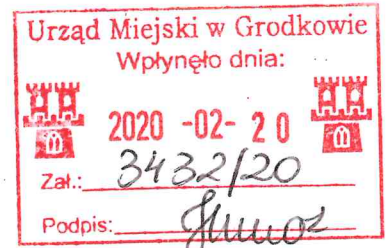 Urząd Miejski w Grodkowie
Wpłynęło dnia:
2020 -02- 20
Zał.: 3432/20
Podpis: